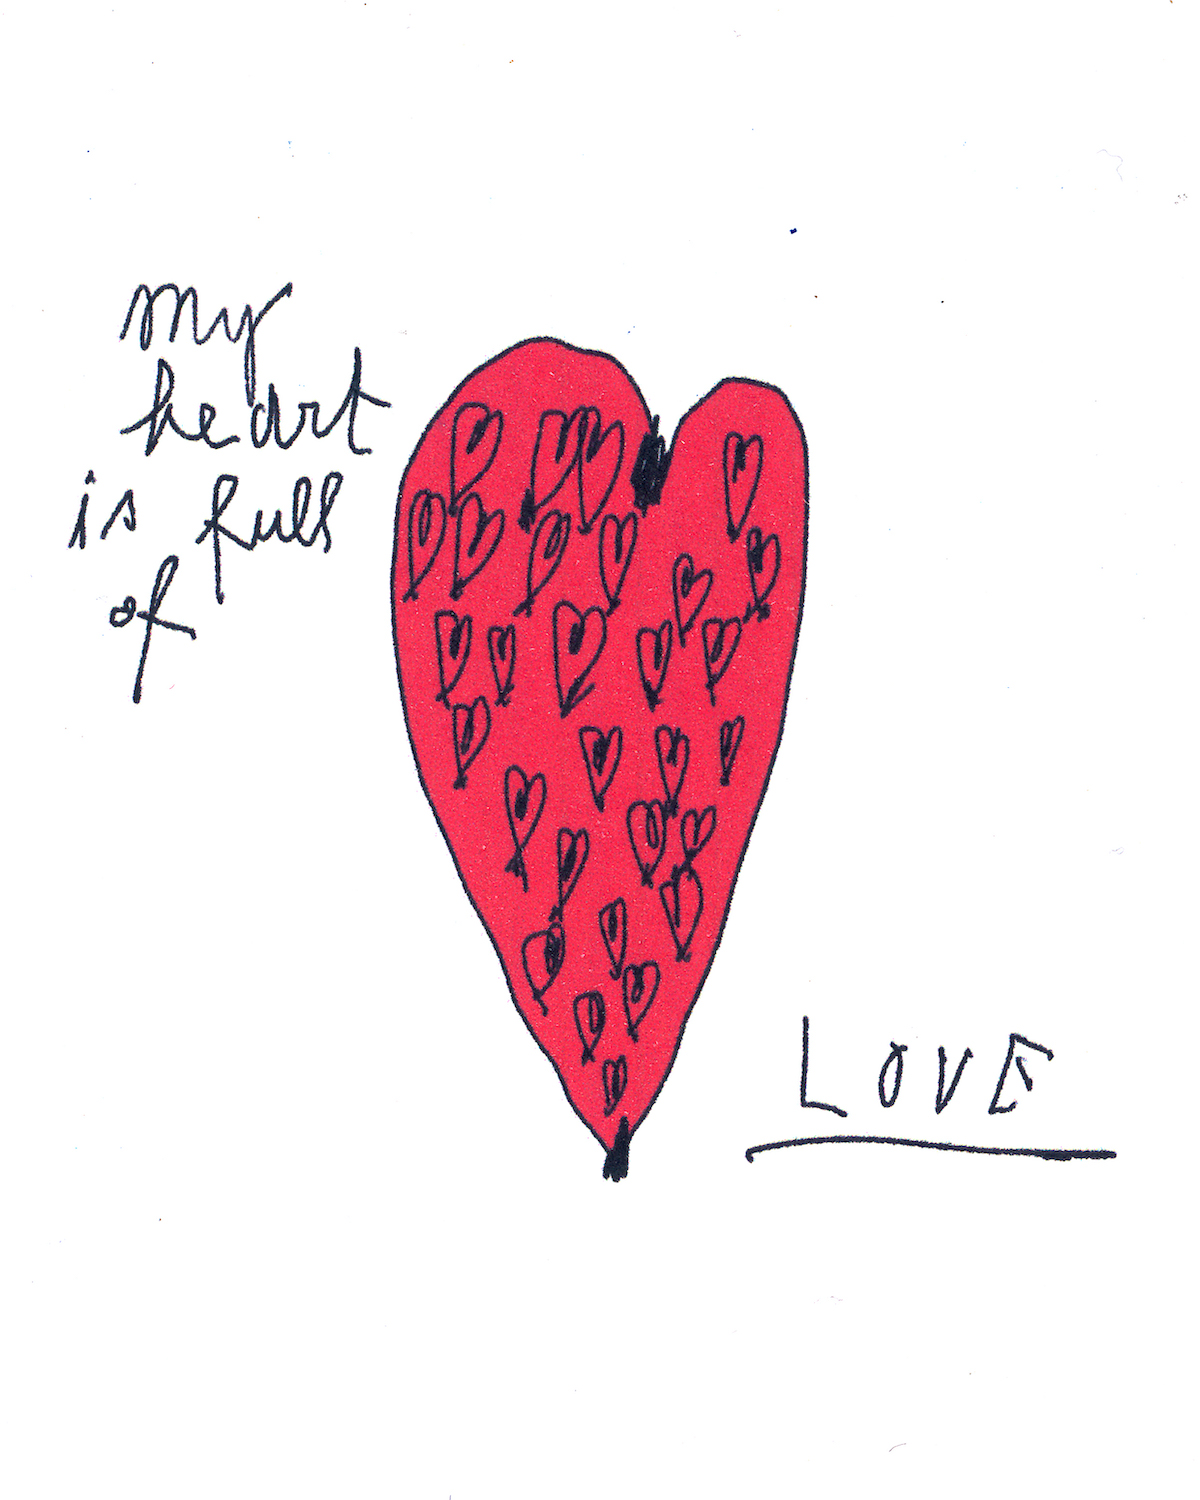 my
heart
is full
of
LOVE